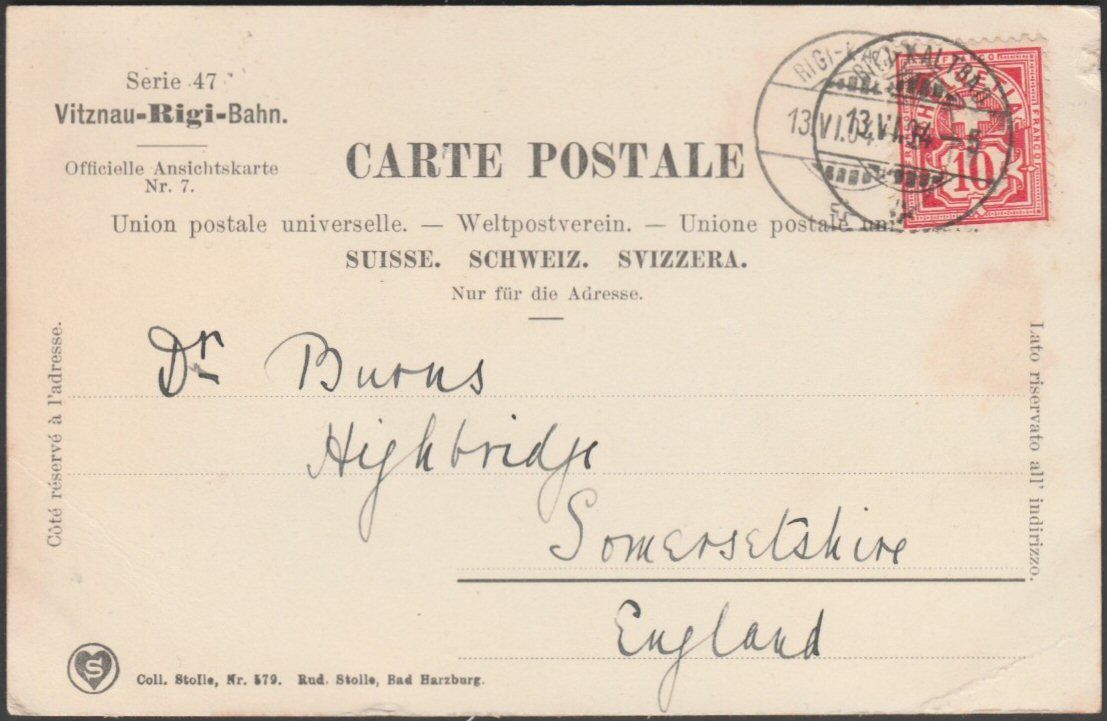 Serie 47
Vitznau-Rigi-Bahn.
Officielle Ansichtskarte
Nr. 7.
CARTE POSTALE
Union postale universelle. — Weltpostverein. — Unione postale
SUISSE. SCHWEIZ. SVIZZERA.
Nur für die Adresse.
RIGI-KALTBAD
13.VI.04.-5
HELVETIA
FRANCO
10
Côté réservé à l'adresse.
Dr Burns
Highbridge
Somersetshire
England
Lato riservato all' indirizzo.
S
Coll. Stolle, Nr. 579. Rud. Stolle, Bad Harzburg.